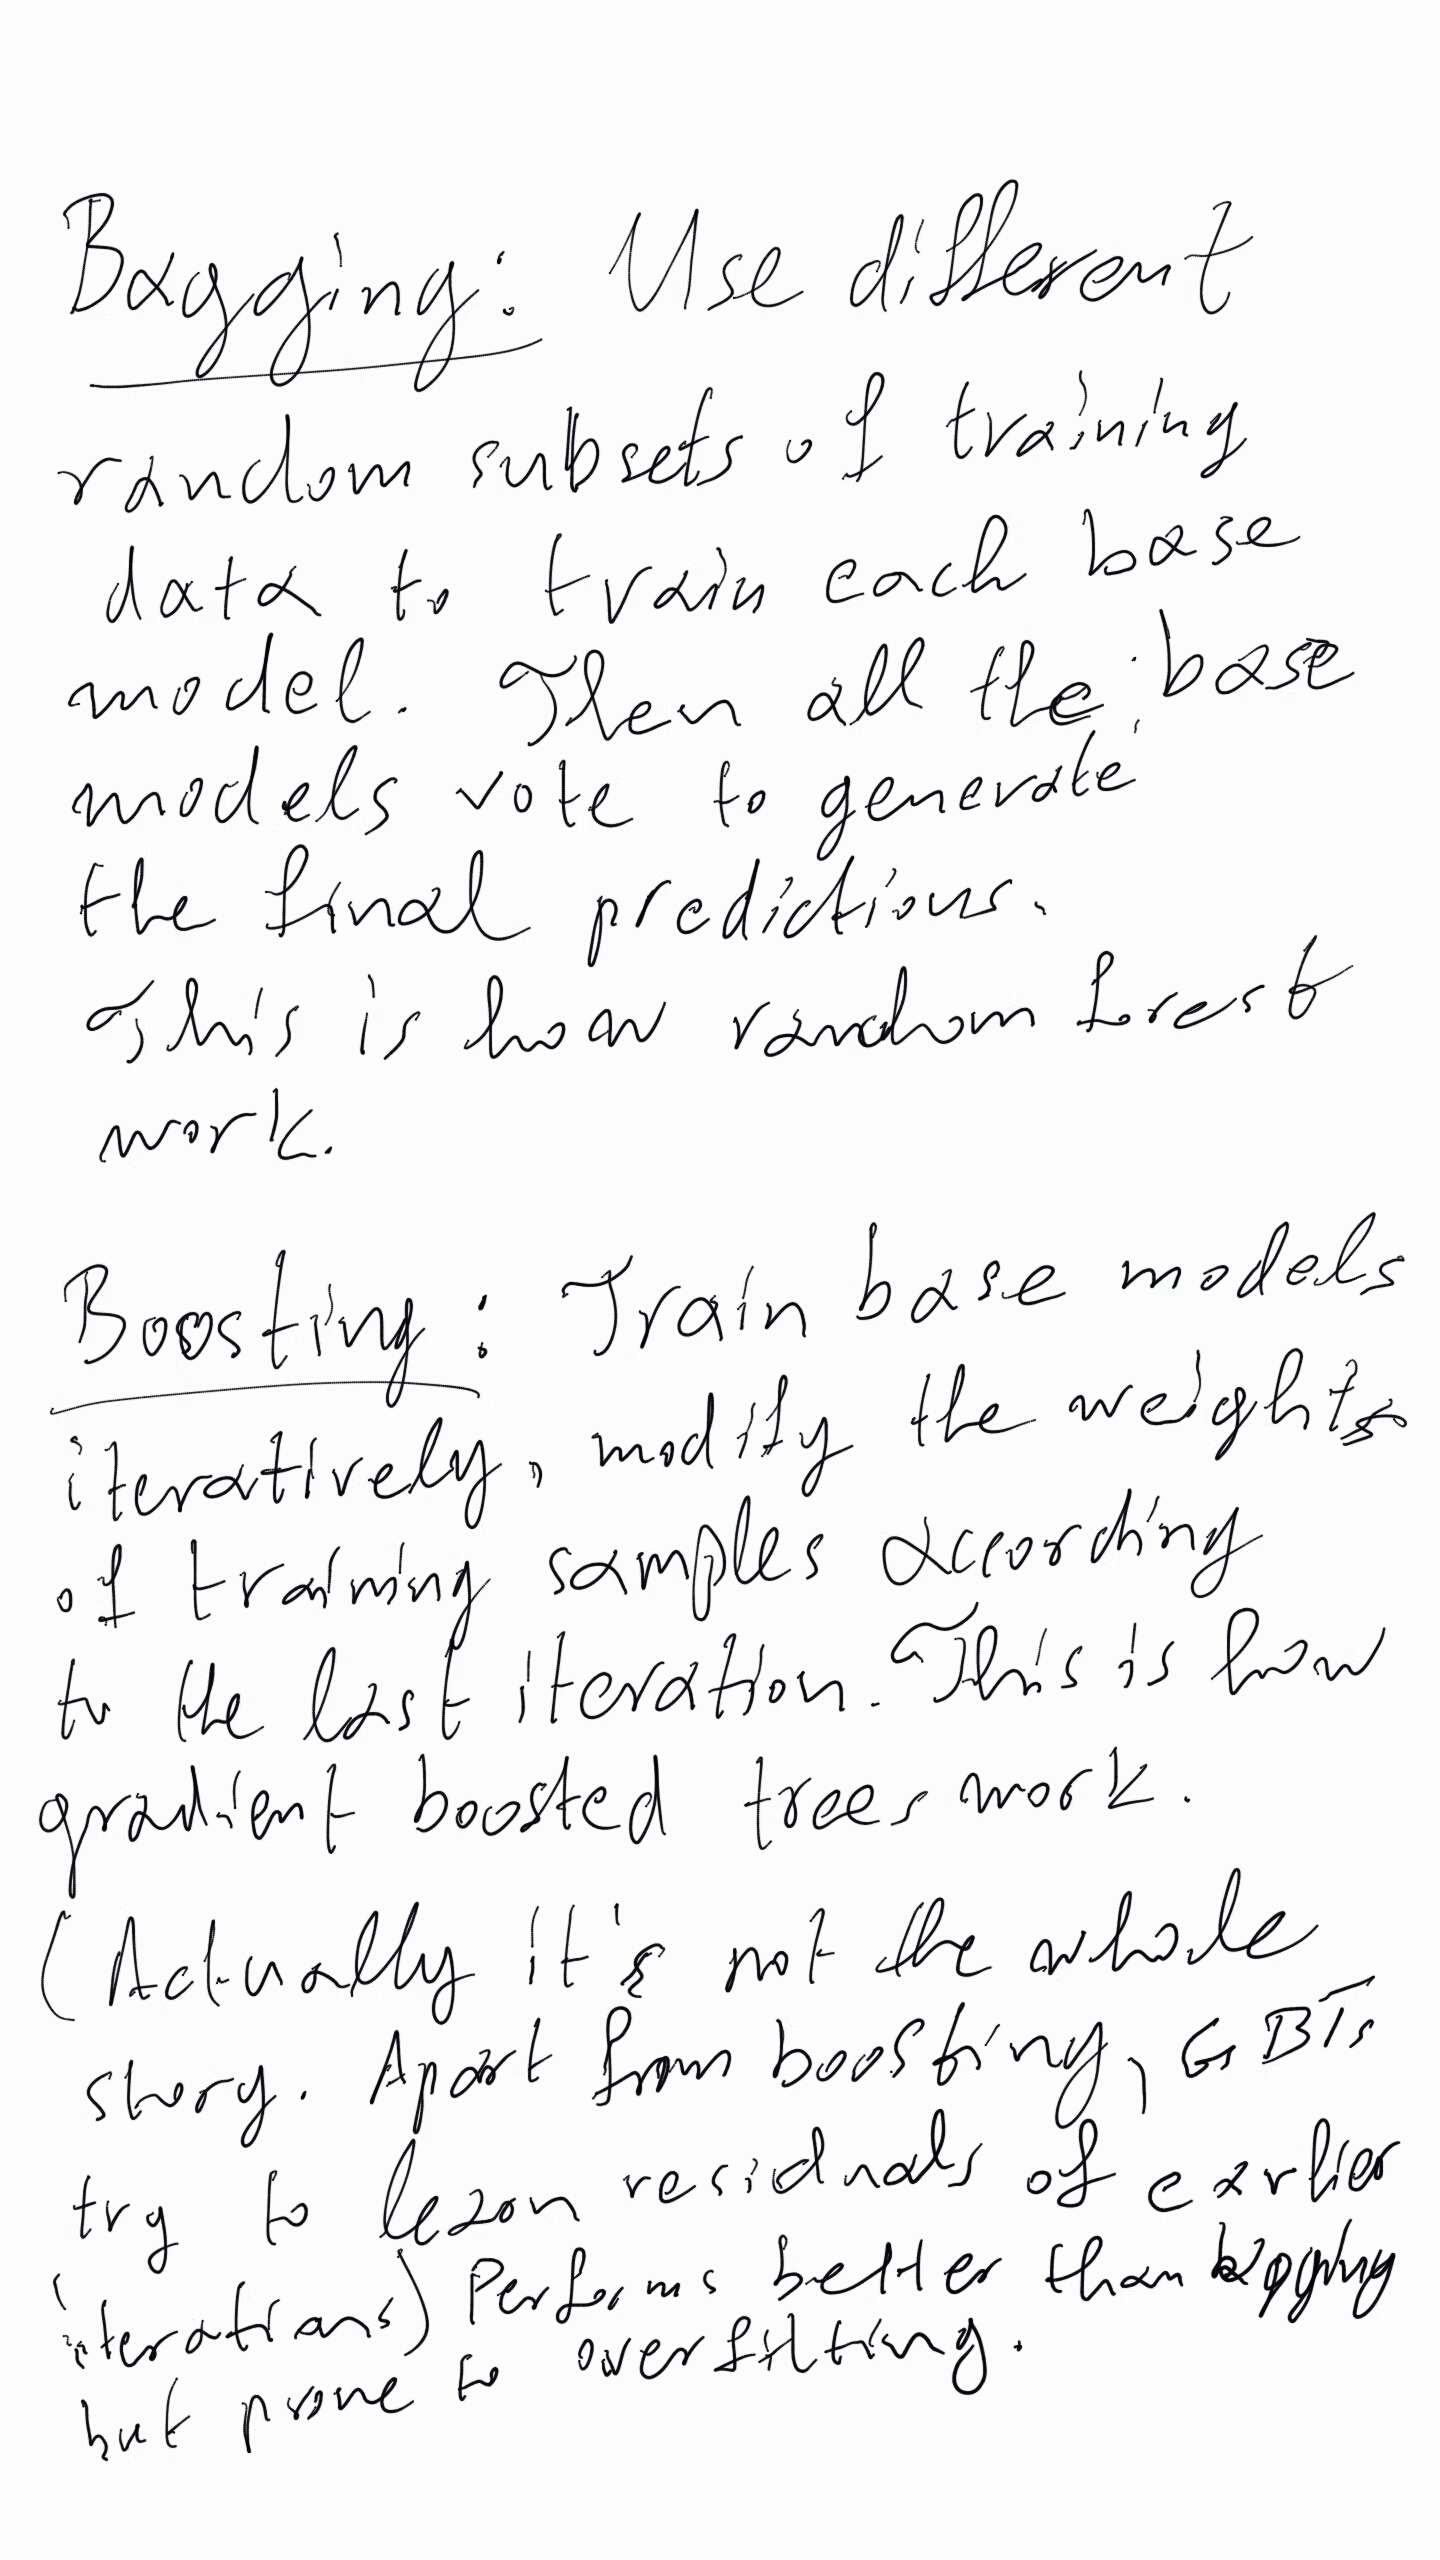 Bagging: Use different
random subsets of training
data to train each base
model. Then all the base
models vote to generate
the final predictions.
This is how random forest
work.
Boosting: Train base models
iteratively, modify the weights
of training samples according
to the last iteration. This is how
gradient boosted trees work.
(Actually it's not the whole
story. Apart from boosting, GBTs
try to learn residuals of earlier
iterations) Performs better than bagging
but prone to overfitting.